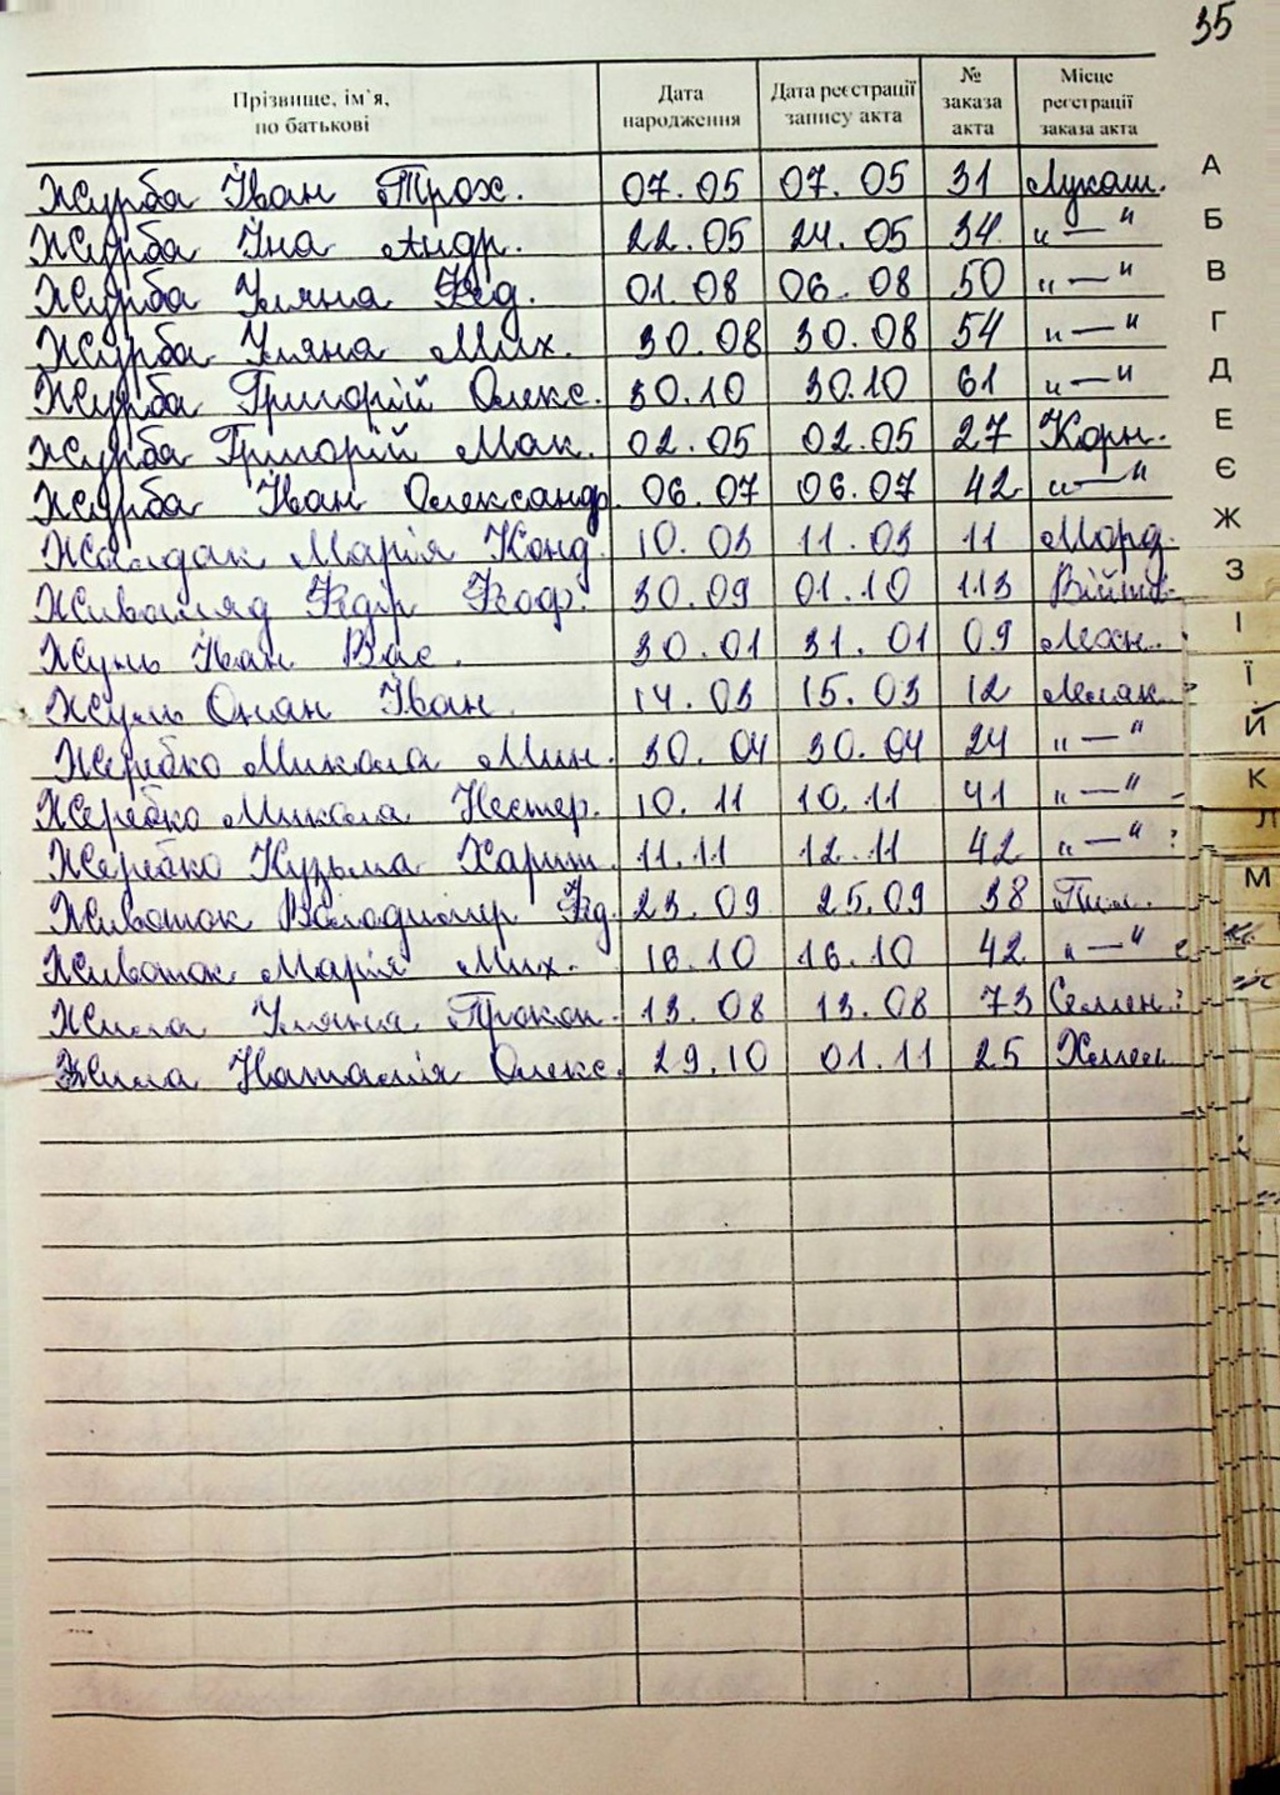 35
Прізвище, ім`я, по батькові Дата народження Дата реєстрації запису акта № заказа акта Місце реєстрації заказа акта
Журба Іван Трох. 07.05 07.05 31 Лукаш.
Журба Іна Андр. 22.05 24.05 34 "—"
Журба Уляна 01.08 06.08 50 "—"
Журба Уляна Мих. 30.08 30.08 54 "—"
Журба Григорій Олекс. 30.10 30.10 61 "—"
Журба Григорій Мак. 02.05 02.05 27 Корн.
Журба Іван Олександр. 06.07 06.07 42 "—"
Жалдак Марія Конд. 10.03 11.03 11 Морд.
30.09 01.10 113 Війтів.
Жуль Іван Вас. 30.01 31.01 09
Жуль Іван 14.03 15.03 12
Жеребко Микола Мин. 30.04 30.04 24 "—"
Жеребко Микола Нестер. 10.11 10.11 41 "—"
Жеребко Кузьма Харит. 11.11 12.11 42 "—"
Животок Володимир 23.09 25.09 38 Пил.
Животок Марія Мих. 16.10 16.10 42 "—"
Жила Уляна Прокоп. 13.08 13.08 73 Семен.
Жила Наталія Олекс. 29.10 01.11 25
А
Б
В
Г
Д
Е
Є
Ж
З
І
Ї
Й
К
Л
М